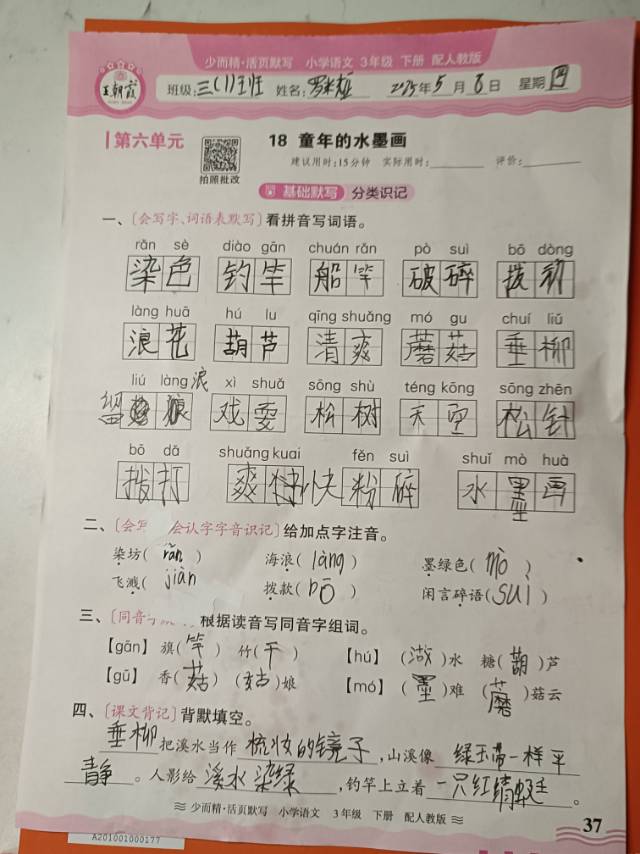 少而精·活页默写 小学语文 3年级 下册 配人教版
王朝霞
班级:三(1)班 姓名: 2025年5月8日 星期四
第六单元 18 童年的水墨画
建议用时:15分钟 实际用时: 评价:
拍照批改
基础默写 分类识记
一、〔会写字、词语表默写〕看拼音写词语。
rǎn sè diào gān chuán rǎn pò suì bō dòng
染色 钓竿 船竿 破碎 拨动
làng huā hú lu qīng shuǎng mó gu chuí liǔ
浪花 葫芦 清爽 蘑菇 垂柳
liú làng 浪 xì shuǎ sōng shù téng kōng sōng zhēn
戏耍 松树 天空 松针
bō dǎ shuǎng kuai fěn suì shuǐ mò huà
拨打 爽快 粉碎 水墨画
墨
二、〔会 会认字字音识记〕给加点字注音。
染坊(rǎn) 海浪(làng) 墨绿色(mò)
飞溅(jiàn) 拨款(bō) 闲言碎语(suì)
三、〔同音 根据读音写同音字组词。
【gān】 旗(竿) 竹(干) 【hú】 (湖)水 糖(葫)芦
【gū】 香(菇) (姑)娘 【mó】 (墨)难 (蘑)菇云
四、〔课文背记〕背默填空。
垂柳把溪水当作梳妆的镜子,山溪像绿玉带一样平
静。人影给溪水染绿,钓竿上立着一只红蜻蜓。
少而精·活页默写 小学语文 3年级 下册 配人教版
37
A201001000177